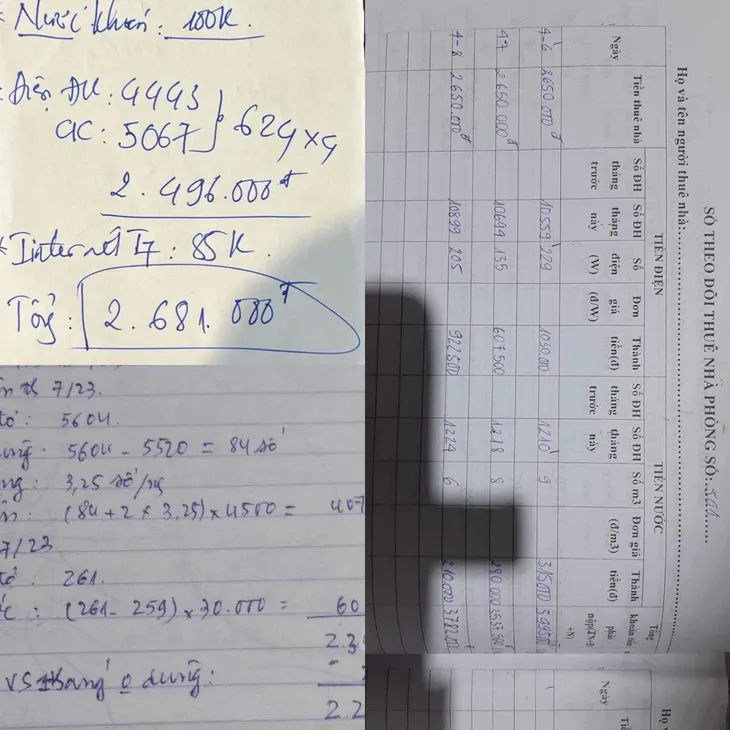 Nước khoán: 100K.
Điện ĐK: 4443
CK: 5067 } 624 x 4
2.496.000đ
* Internet T7: 85K.
Tổng: 2.681.000đ
7/23.
số: 5604.
5604 - 5520 = 84 số
3,25 số/ng
(84 + 2 x 3.25) x 4500 = 407
7/23
số: 261.
(261 - 259) x 30.000 = 60
2.3
VS tháng 0 dùng:
2.2
SỔ THEO DÕI THUÊ NHÀ PHÒNG SỐ: 501
Họ và tên người thuê nhà:
Ngày Tiền thuê nhà TIỀN ĐIỆN TIỀN NƯỚC Tổng
Số ĐH tháng trước Số ĐH tháng này Số điện (W) Đơn giá (đ/W) Thành tiền(đ) Số ĐH tháng trước Số ĐH tháng này Số m3 Đơn giá (đ/m3) Thành tiền(đ)
4-6 2650.000đ 10559 229 1030.000 1210 9 315.000
4-7 2650.000đ 10694 135 607500 1218 8 280.000
4-8 2650.000đ 10899 205 922500 1224 6 210.000
Ngày